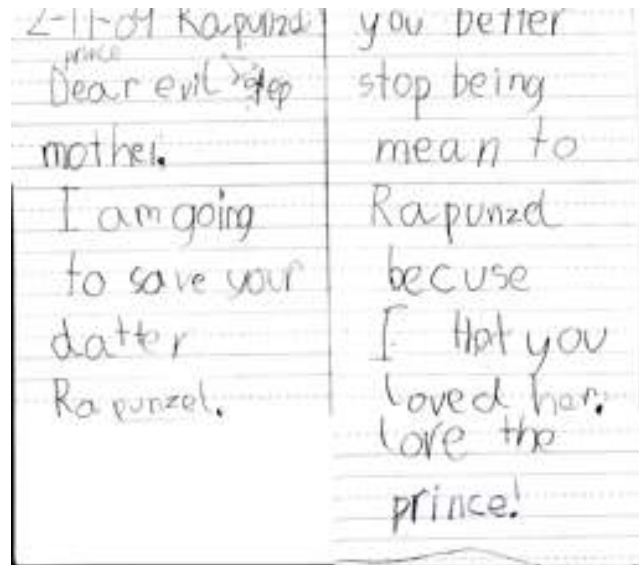 2-11-09 Rapunzel
prince
Dear evil step
mother.
I am going
to save your
datter
Rapunzel.
you better
stop being
mean to
Rapunzel
becuse
I that you
loved her.
love the
prince!